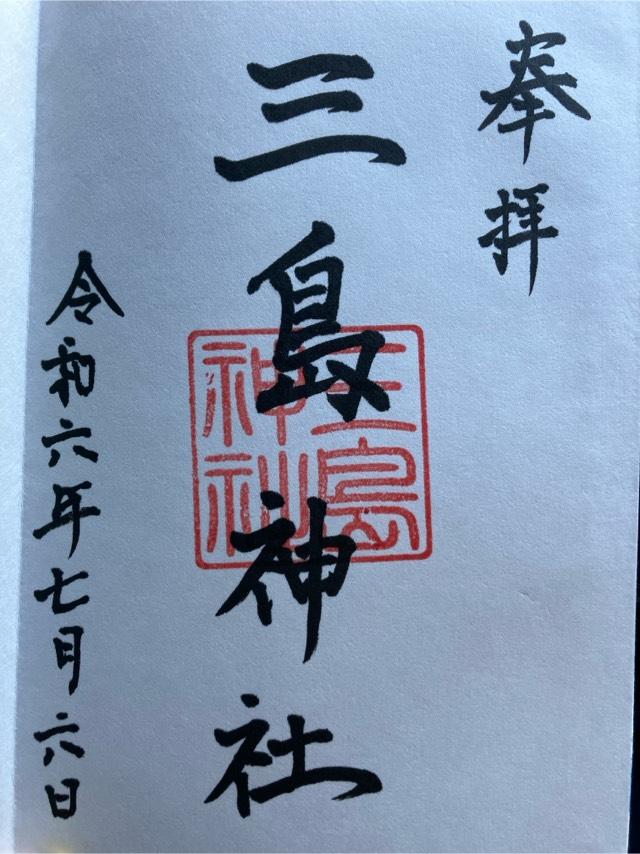 奉拝
三島神社
三島
神社
令和六年七月六日